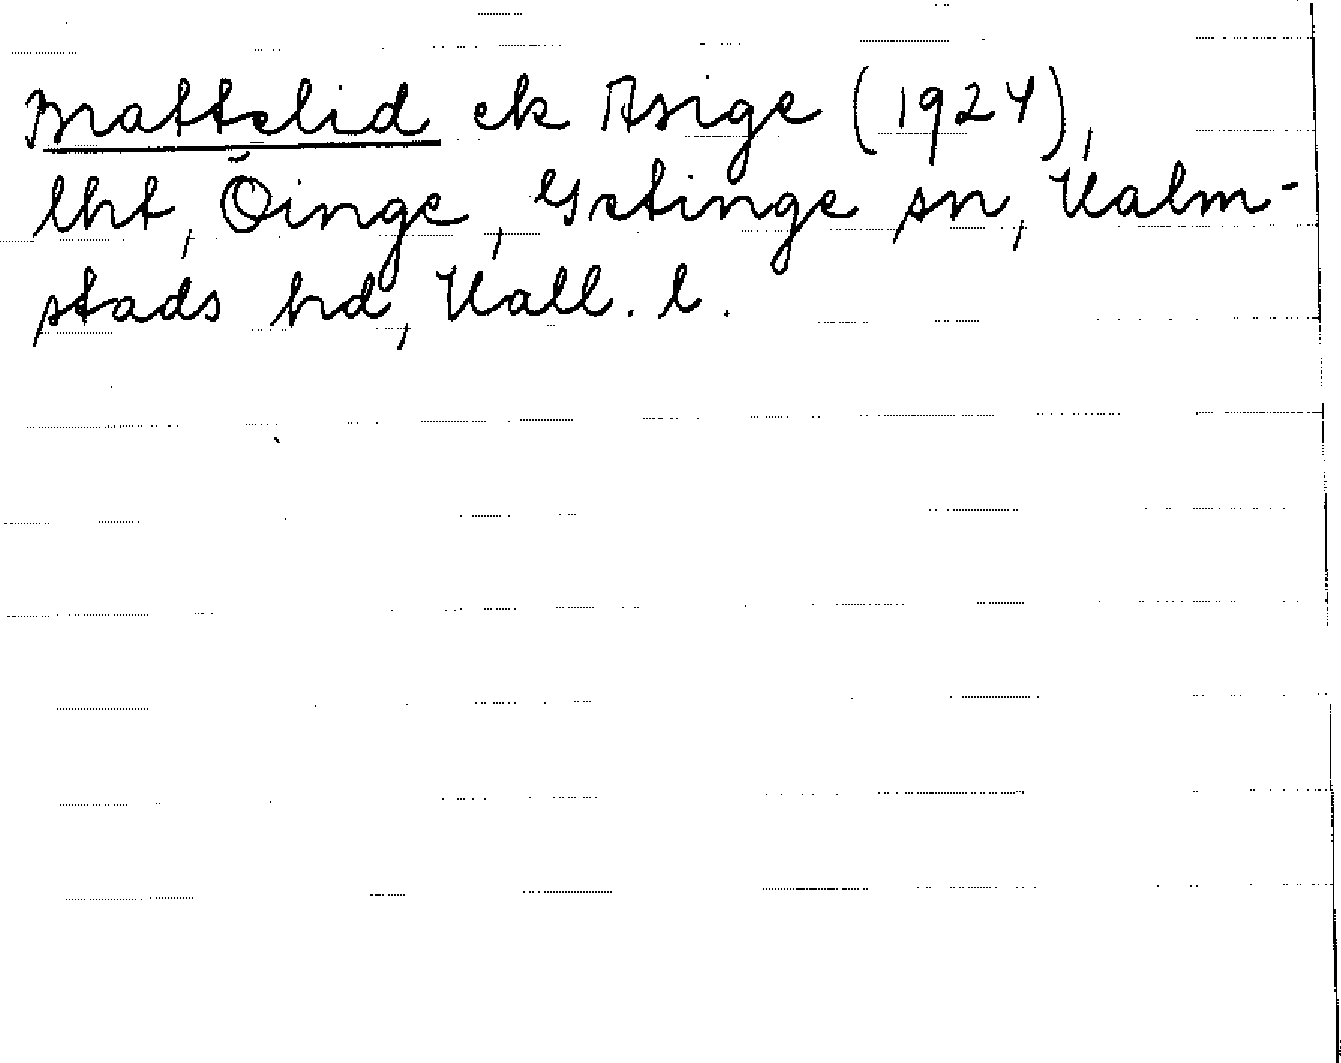 Brattelid ek Asige (1924),
lht, Öinge, Getinge sn, Halm-
stads hd, Hall. l.